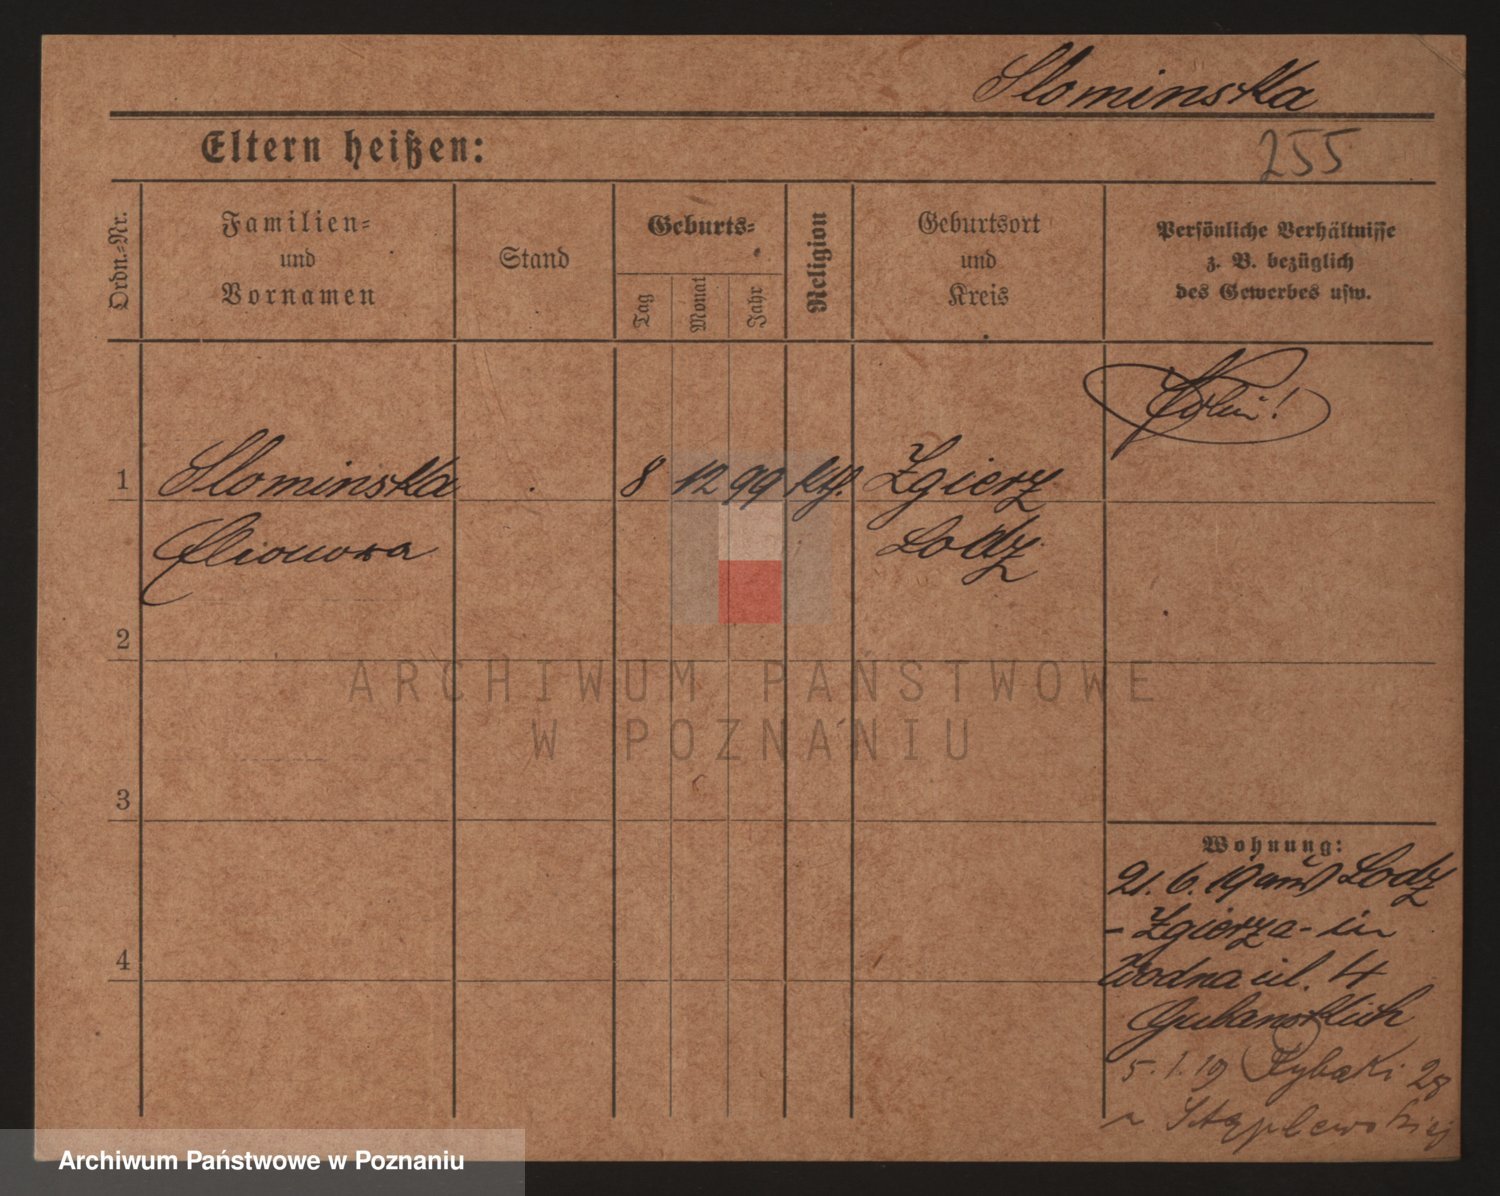 Slominska
Eltern heißen:
255
Ordn.-Nr.
Familien-
und
Vornamen
Stand
Geburts-
Tag
Monat
Jahr
Religion
Geburtsort
und
Kreis
Persönliche Verhältnisse
z. B. bezüglich
des Gewerbes usw.
1
Slominska
8 12 99 kth.
Zgierz
Lodz
2
3
4
Wohnung:
21. 6. 19 aus Lodz
- Zgierza - in
Wodna ul. 4
5. 1. 19 Rybaki 28
ARCHIWUM PAŃSTWOWE
W POZNANIU
Archiwum Państwowe w Poznaniu